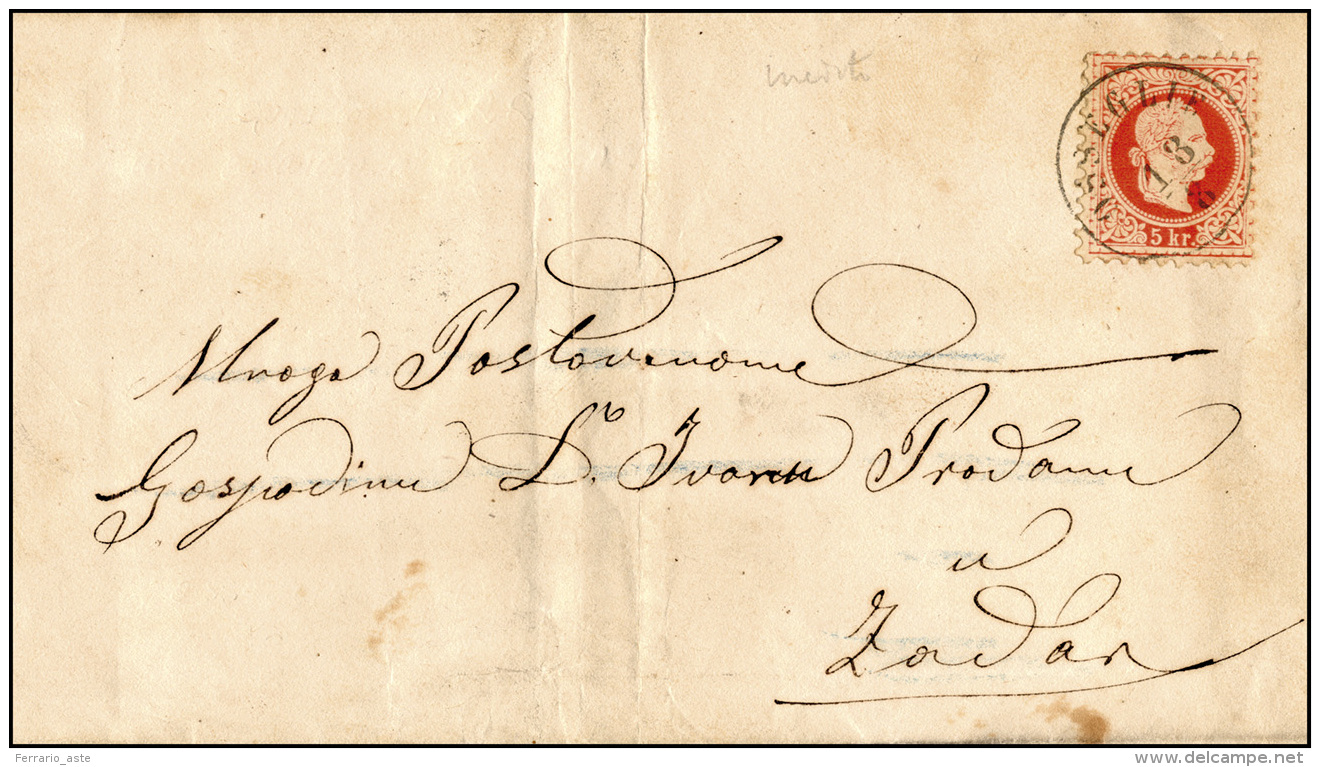 inedito
CASEGLIE
13
8
5 kr.
Mnogo Postovanome
Gospodinu Dr. Ivanu Prodanu
u
Zadar
Ferrario_aste
www.delcampe.net